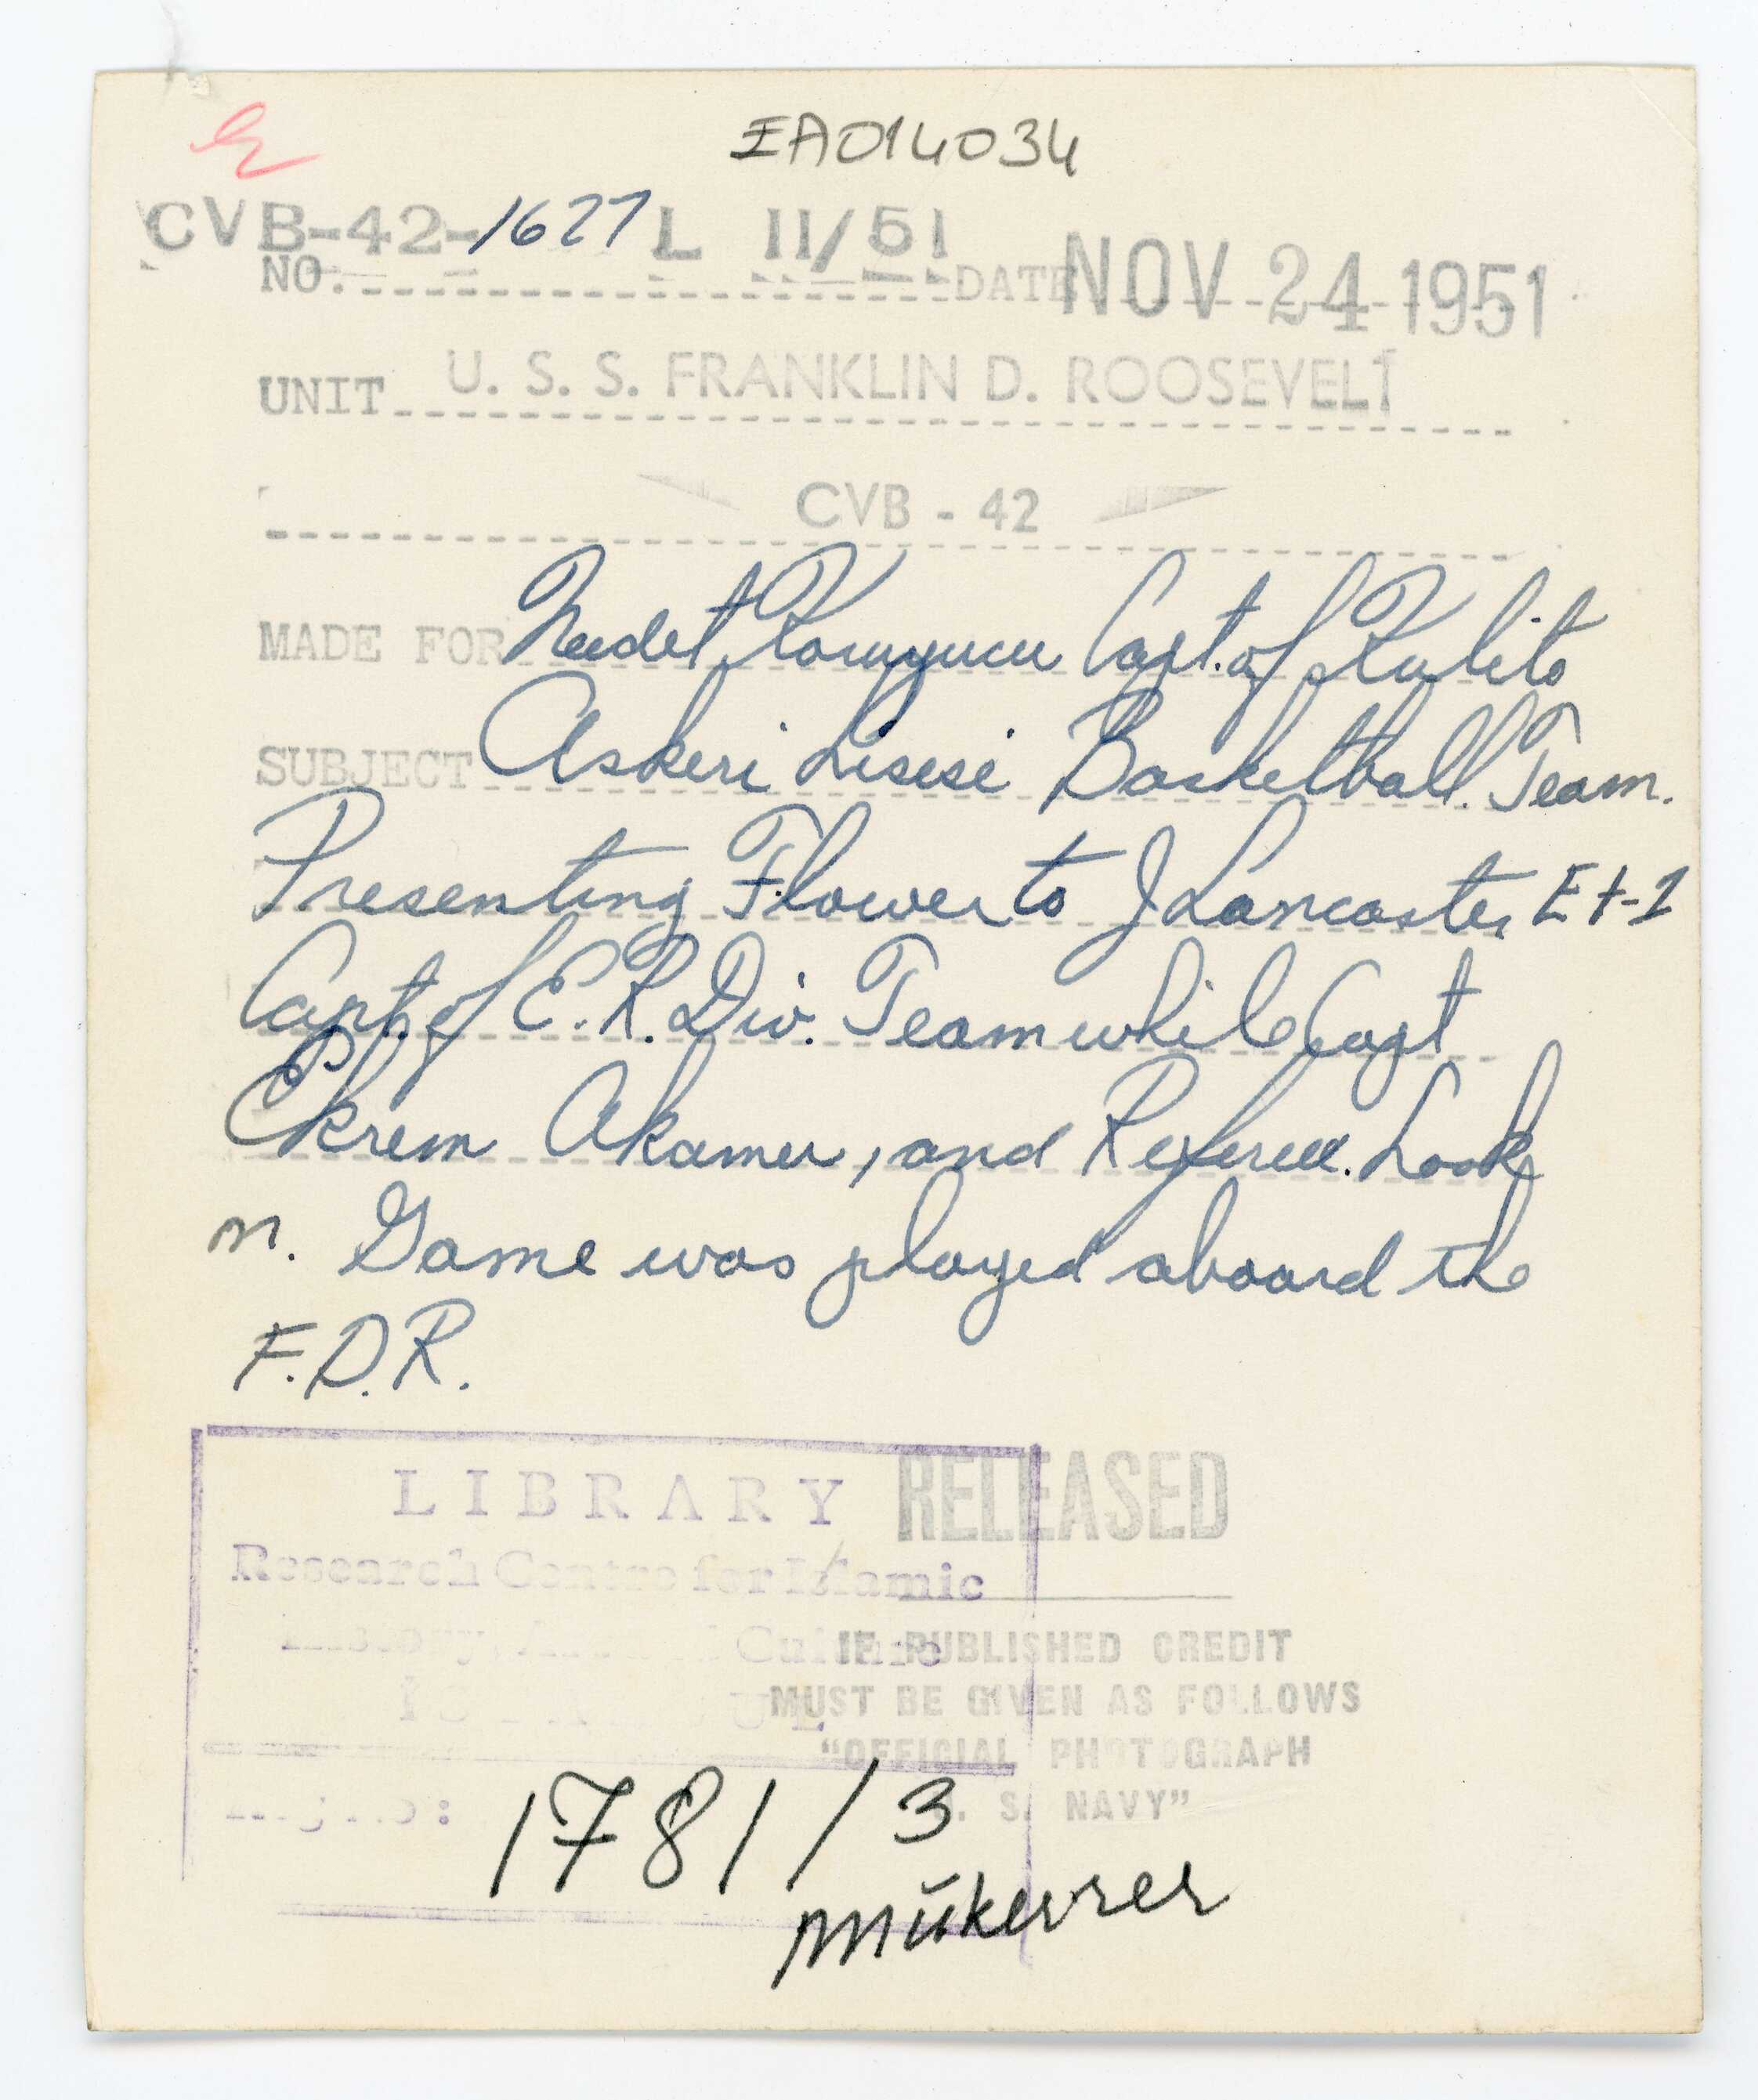 EA014034
CVB-42-1627 L 11/51
NO. DATE NOV 24 1951
UNIT U. S. S. FRANKLIN D. ROOSEVELT
CVB - 42
MADE FOR Capt. of
SUBJECT Askeri Lisesi Basketball Team.
Presenting Flower to J Lancaster Et-1
Capt. of E.R. Div. Team while Capt
Ekrem Akamer, and Referee. Look
n. Game was played aboard the
F.D.R.
LIBRARY
RELEASED
Research Centre for Islamic
IF PUBLISHED CREDIT
MUST BE GIVEN AS FOLLOWS
"OFFICIAL PHOTOGRAPH
S. NAVY"
1781/3
mükerrer